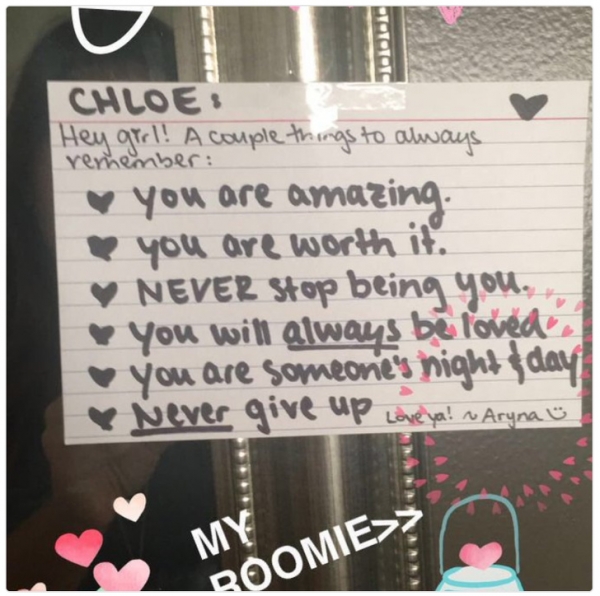 CHLOE:
Hey grrl! A couple things to always
remember:
you are amazing.
you are worth it.
NEVER stop being you.
you will always be loved
you are someone's night & day
Never give up Love ya! ~Aryna
MY
ROOMIE>>